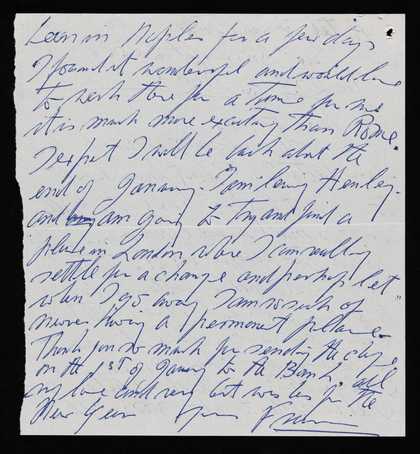 been in Naples for a few days
I found it wonderful and would love
to work there for a time for me
it is much more exciting than Rome.
I expect I will be back about the
end of January. I am leaving Henley.
and am going to try and find a
place in London where I can really
settle for a change and perhaps let
when I go away I am so sick of
never having a permanent place.
Thank you so much for sending the
on the 1st of January to the Bank. all
my love and very best wishes for the
New Year yours